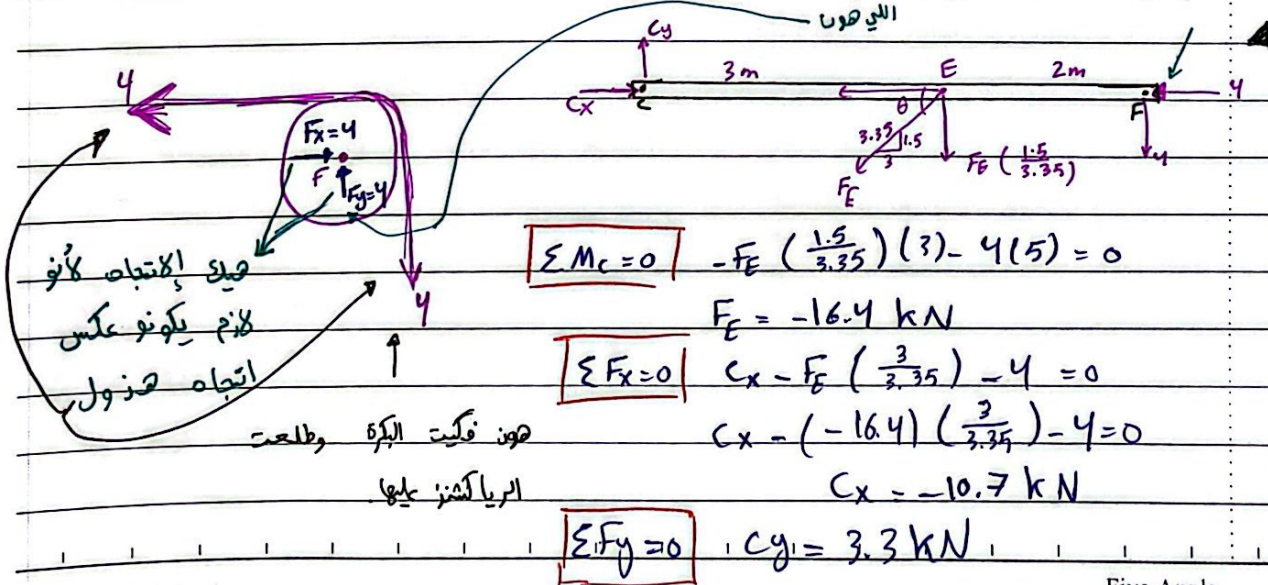 اللي هون
Cy
3m
E
2m
Cx
C
θ
F
4
3.35
1.5
3
FE
FE (1.5/3.35)
4
4
Fx=4
F
Fy=4
4
هيك الاتجاه لأنو
لازم يكونو عكس
اتجاه هذول
هون فكيت البكرة وطلعت
الرياكشنز عليها
ΣMc=0 -FE (1.5/3.35)(3) - 4(5) = 0
FE = -16.4 kN
ΣFx=0 Cx - FE (3/3.35) - 4 = 0
Cx - (-16.4)(3/3.35) - 4=0
Cx = -10.7 kN
ΣFy=0 Cy = 3.3 kN